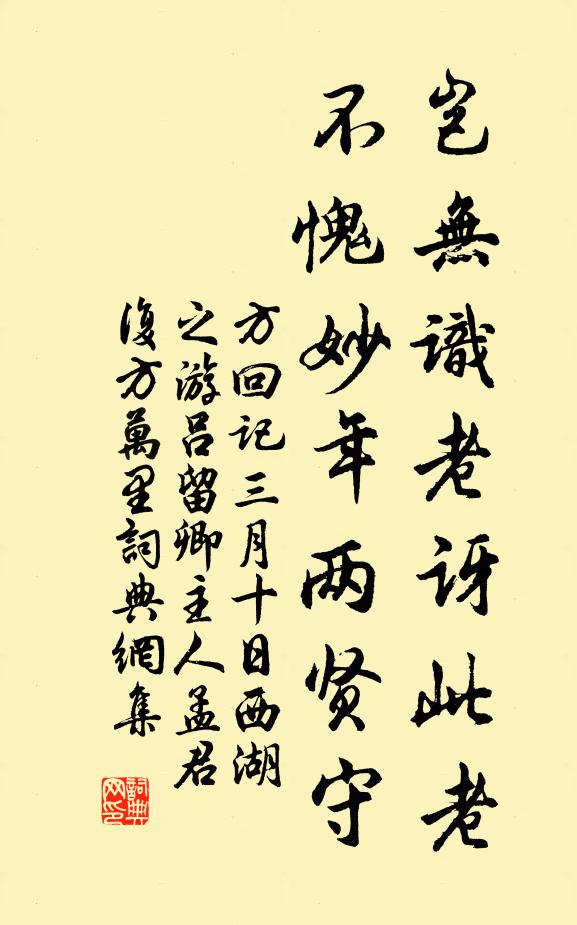 岂無識老訝此老
不愧妙年两贤守
方回记三月十日西湖
之游吕留卿主人孟君
復方萬里詞典網集
詞典
网印